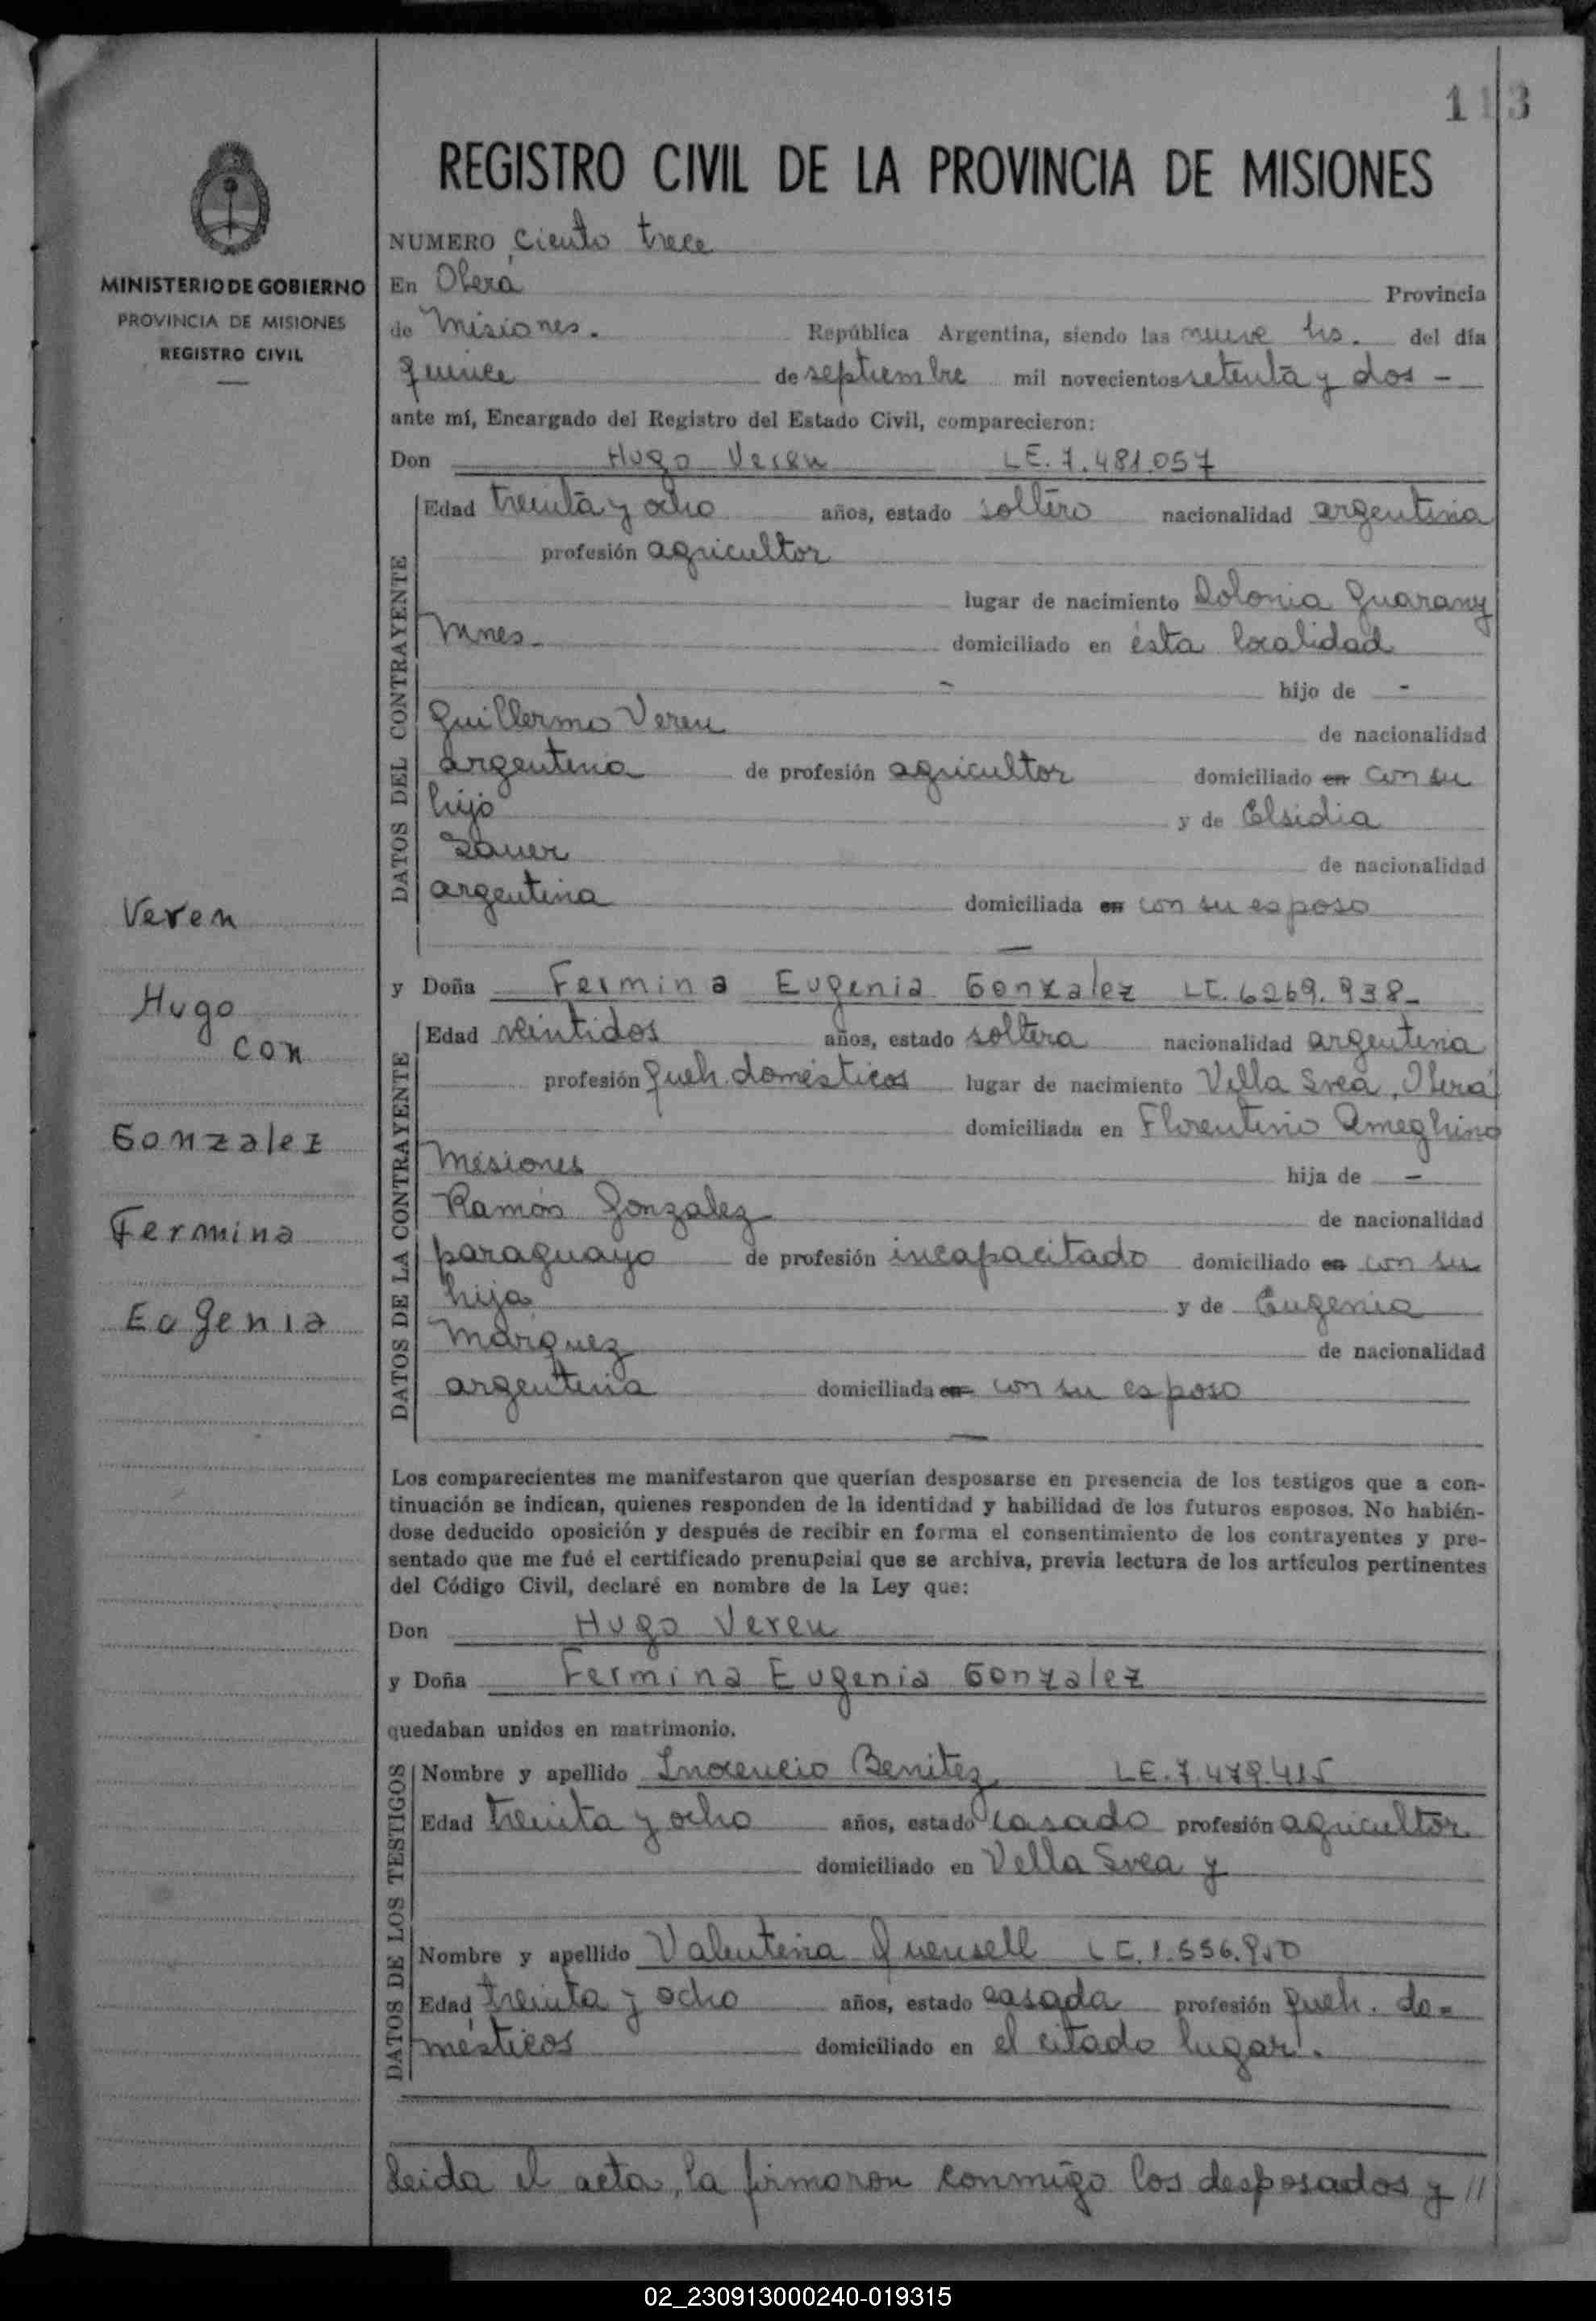 113
REGISTRO CIVIL DE LA PROVINCIA DE MISIONES
NUMERO ciento trece
MINISTERIO DE GOBIERNO
PROVINCIA DE MISIONES
REGISTRO CIVIL
En Oberá Provincia
de Misiones. República Argentina, siendo las nueve hs. del día
quince de septiembre mil novecientos setenta y dos -
ante mí, Encargado del Registro del Estado Civil, comparecieron:
Don Hugo Veren LE. 7.481.057
DATOS DEL CONTRAYENTE
Edad treinta y ocho años, estado soltero nacionalidad argentina
profesión agricultor
lugar de nacimiento Colonia Guarany
Mnes. domiciliado en ésta localidad
- hijo de -
Guillermo Veren de nacionalidad
argentina de profesión agricultor domiciliado en con su
hijo y de Elsidia
de nacionalidad
argentina domiciliada en con su esposo
Veren
Hugo
con
Gonzalez
Fermina
Eugenia
y Doña Fermina Eugenia Gonzalez LC. 6269.938-
DATOS DE LA CONTRAYENTE
Edad veintidos años, estado soltera nacionalidad argentina
profesión queh. domésticos lugar de nacimiento Villa Svea, Oberá
domiciliada en Florentino Ameghino
Misiones hija de -
Ramón Gonzalez de nacionalidad
paraguayo de profesión incapacitado domiciliado en con su
hija y de Eugenia
Márquez de nacionalidad
argentina domiciliada en con su esposo
Los comparecientes me manifestaron que querían desposarse en presencia de los testigos que a con-
tinuación se indican, quienes responden de la identidad y habilidad de los futuros esposos. No habién-
dose deducido oposición y después de recibir en forma el consentimiento de los contrayentes y pre-
sentado que me fué el certificado prenupcial que se archiva, previa lectura de los artículos pertinentes
del Código Civil, declaré en nombre de la Ley que:
Don Hugo Veren
y Doña Fermina Eugenia Gonzalez
quedaban unidos en matrimonio.
DATOS DE LOS TESTIGOS
Nombre y apellido Inocencio Benitez LE. 7.479.415
Edad treinta y ocho años, estado casado profesión agricultor
domiciliado en Villa Svea y
Nombre y apellido Valentina LC. 1.556.
Edad treinta y ocho años, estado casada profesión queh. do=
mésticos domiciliado en el citado lugar.
Leida el acta, la firmaron conmigo los desposados y //
02_230913000240-019315